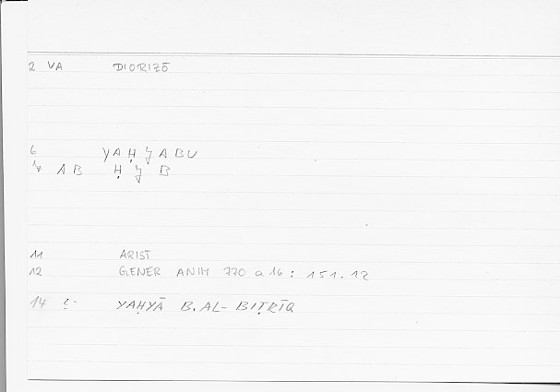 2 VA DIORIZŌ
6 YAḤJABU
AB ḤJB
11 ARIST
12 GENER ANIM 770 a 16 : 151.12
14 YAḤYĀ B. AL-BIṬRĪQ